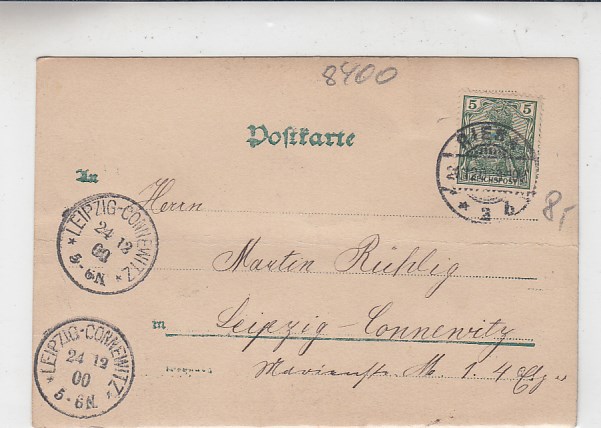 8400
Postkarte
5 5
REICHSPOST
RIESA
* a b
8,-
An
Herrn
* LEIPZIG-CONNEWITZ *
24 12
00
5-6N.
Martin Rühlig
in Leipzig-Connewitz
* LEIPZIG-CONNEWITZ *
24 12
00
5-6N.
M. 1. 4 Etg.